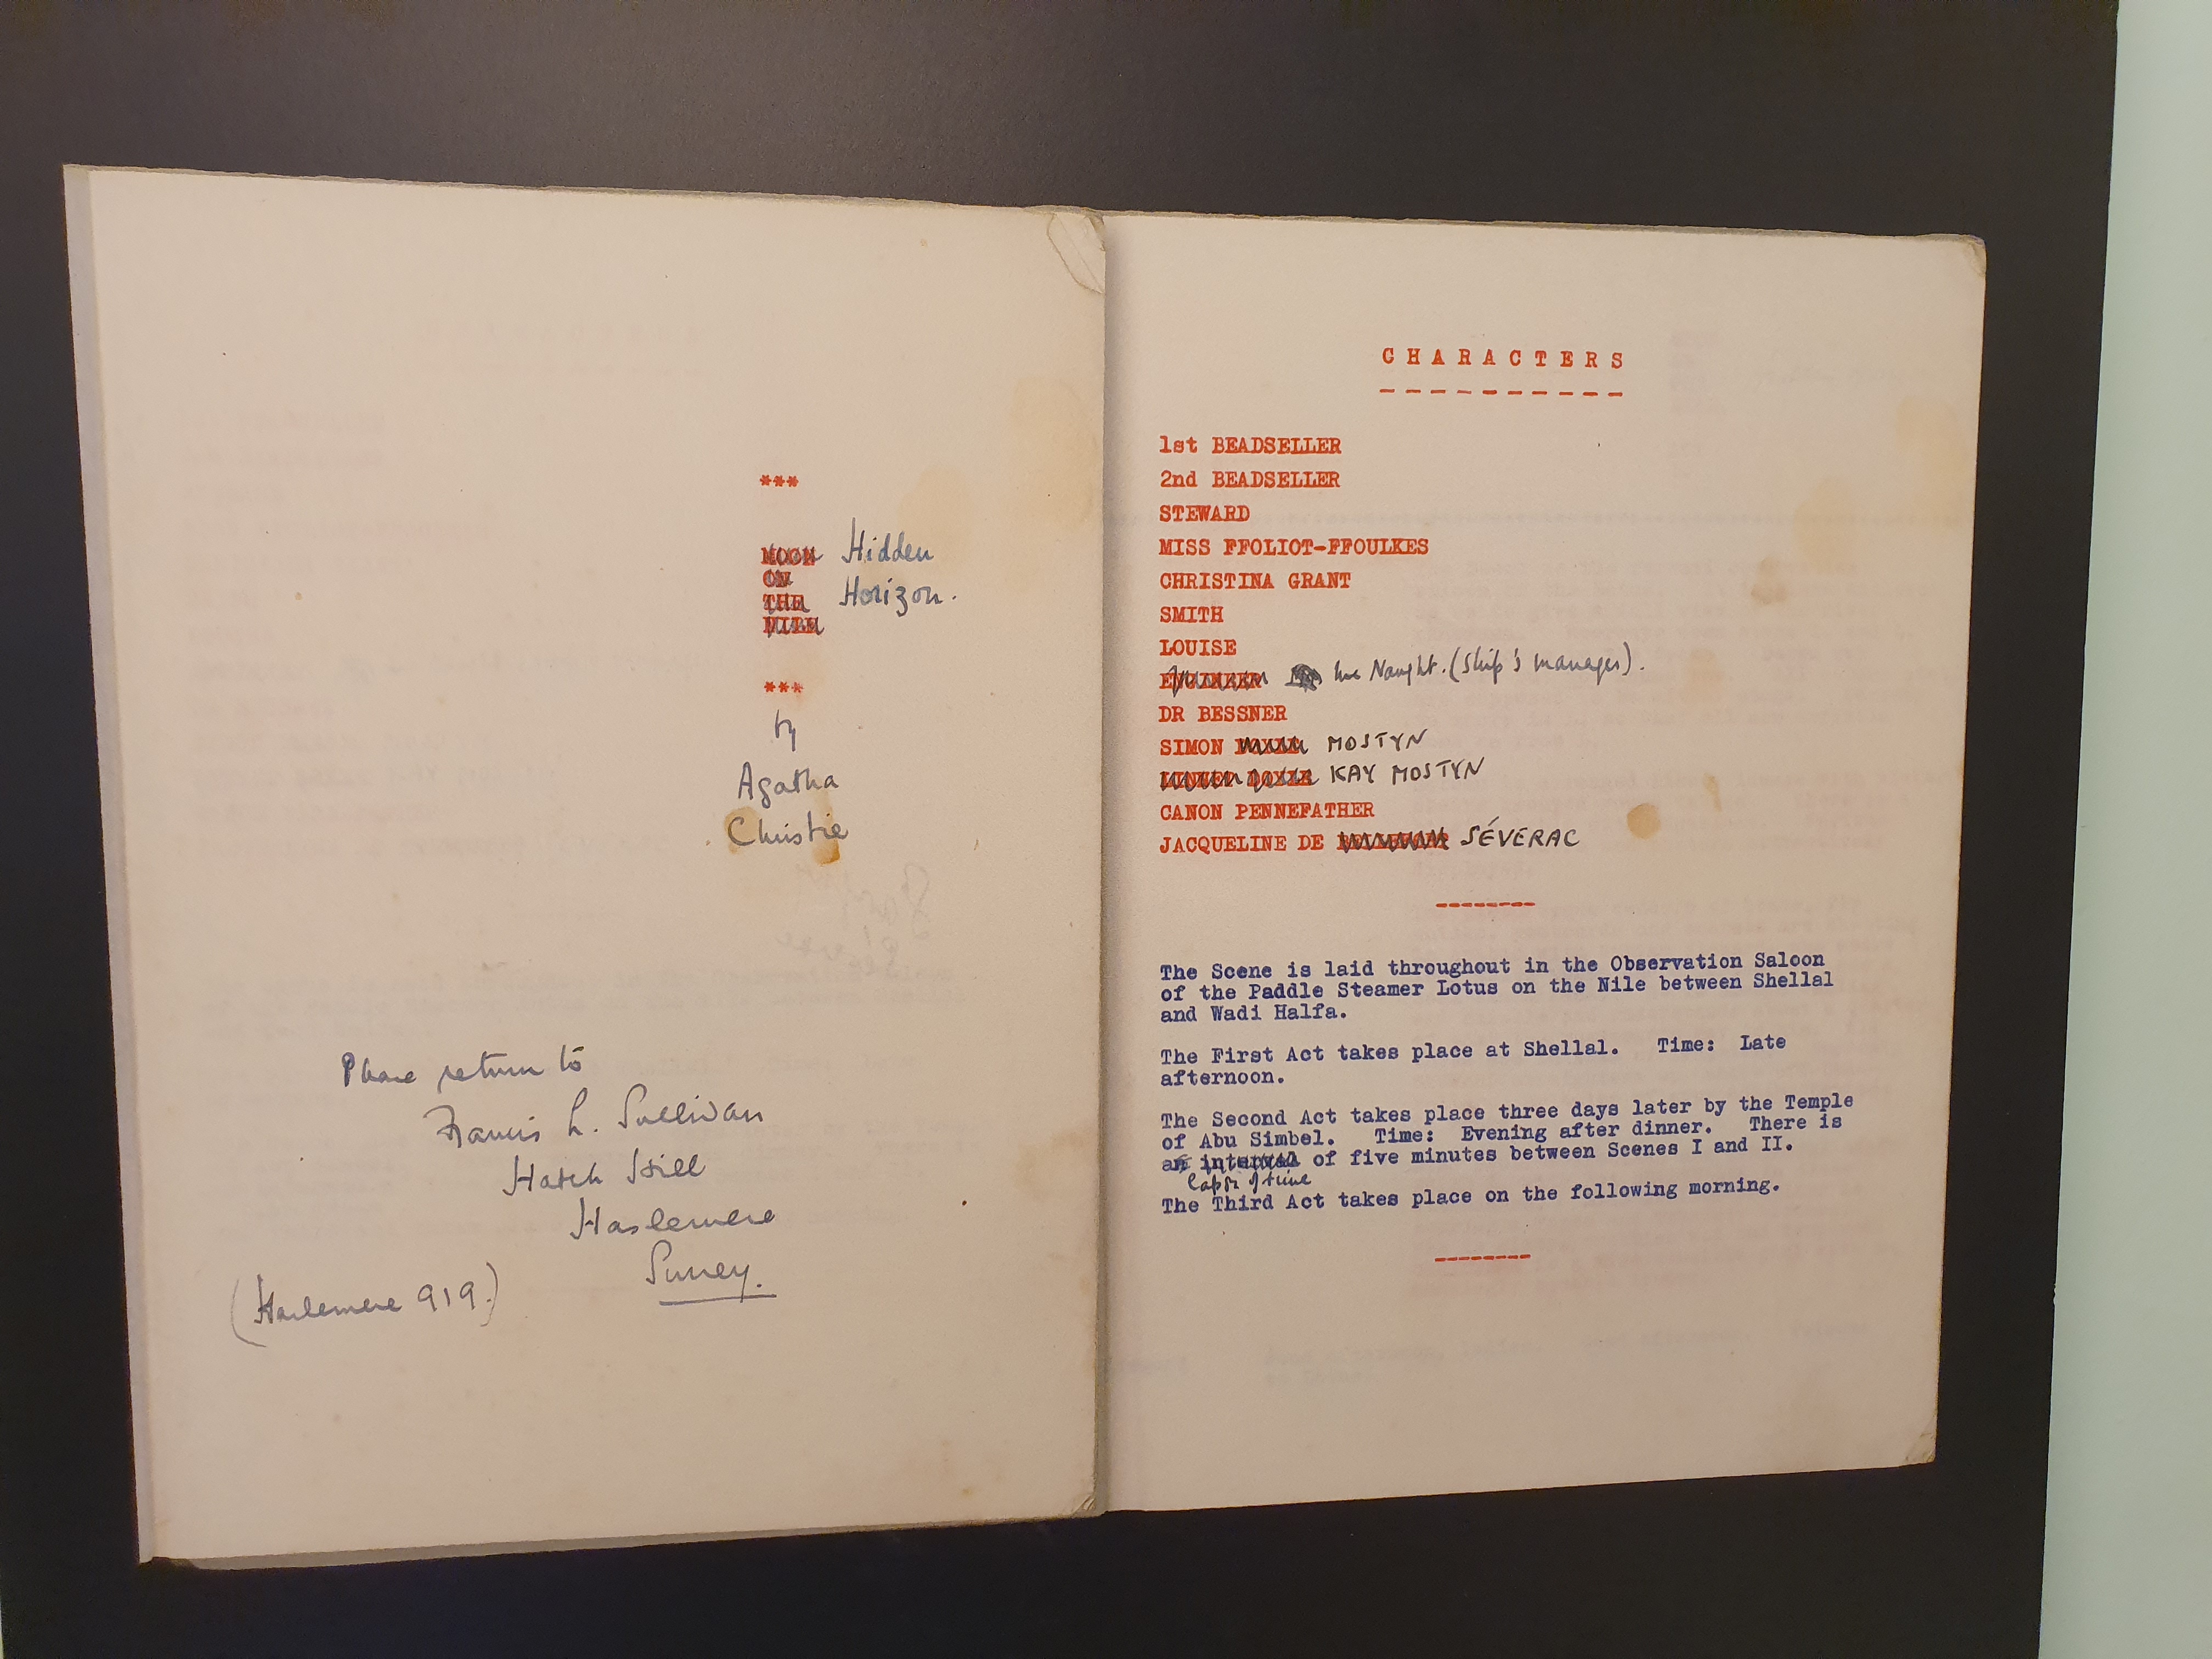 ***
MOON Hidden
ON
THE Horizon.
NILE
***
by
Agatha
Christie
Please return to
Francis L. Sullivan
Hatch Hill
Haslemere
Surrey.
(Haslemere 919.)
CHARACTERS
----------
1st BEADSELLER
2nd BEADSELLER
STEWARD
MISS FFOLIOT-FFOULKES
CHRISTINA GRANT
SMITH
LOUISE
ENGINEER Mc Naught. (Ship's manager).
DR BESSNER
SIMON DOYLE MOSTYN
LINNET DOYLE KAY MOSTYN
CANON PENNEFATHER
JACQUELINE DE SÉVERAC
--------
The Scene is laid throughout in the Observation Saloon
of the Paddle Steamer Lotus on the Nile between Shellal
and Wadi Halfa.
The First Act takes place at Shellal. Time: Late
afternoon.
The Second Act takes place three days later by the Temple
of Abu Simbel. Time: Evening after dinner. There is
an interval of five minutes between Scenes I and II.
lapse of time
The Third Act takes place on the following morning.
--------